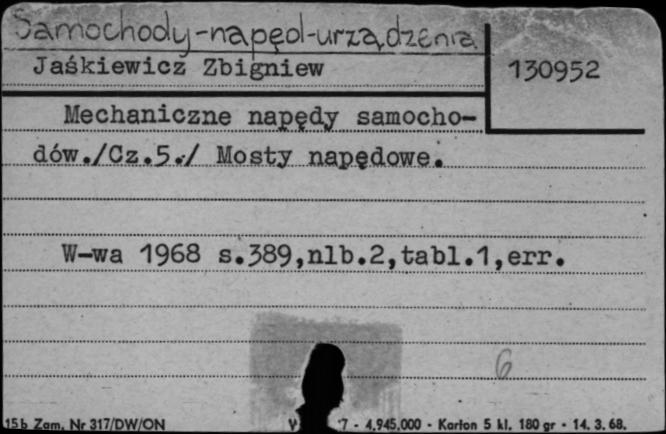 Samochody-napęd-urządzenia
Jaśkiewicz Zbigniew 130952
Mechaniczne napędy samocho-
dów./Cz.5./ Mosty napędowe.
W-wa 1968 s.389,nlb.2,tabl.1,err.
6
15b Zam. Nr 317/DW/ON 7 - 4.945.000 - Karton 5 kl. 180 gr - 14. 3. 68.